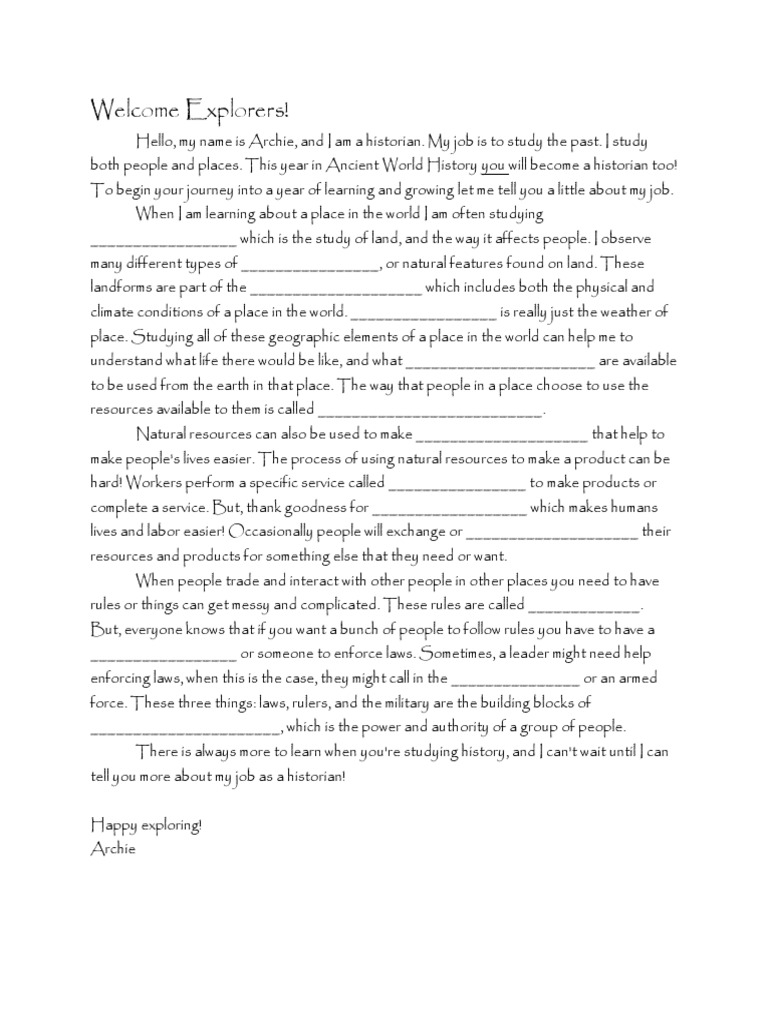 Welcome Explorers!
Hello, my name is Archie, and I am a historian. My job is to study the past. I study
both people and places. This year in Ancient World History you will become a historian too!
To begin your journey into a year of learning and growing let me tell you a little about my job.
When I am learning about a place in the world I am often studying
_________________ which is the study of land, and the way it affects people. I observe
many different types of ________________, or natural features found on land. These
landforms are part of the ____________________ which includes both the physical and
climate conditions of a place in the world. _________________ is really just the weather of
place. Studying all of these geographic elements of a place in the world can help me to
understand what life there would be like, and what ______________________ are available
to be used from the earth in that place. The way that people in a place choose to use the
resources available to them is called __________________________.
Natural resources can also be used to make ____________________ that help to
make people's lives easier. The process of using natural resources to make a product can be
hard! Workers perform a specific service called ________________ to make products or
complete a service. But, thank goodness for __________________ which makes humans
lives and labor easier! Occasionally people will exchange or ____________________ their
resources and products for something else that they need or want.
When people trade and interact with other people in other places you need to have
rules or things can get messy and complicated. These rules are called _____________.
But, everyone knows that if you want a bunch of people to follow rules you have to have a
_________________ or someone to enforce laws. Sometimes, a leader might need help
enforcing laws, when this is the case, they might call in the _______________ or an armed
force. These three things: laws, rulers, and the military are the building blocks of
______________________, which is the power and authority of a group of people.
There is always more to learn when you're studying history, and I can't wait until I can
tell you more about my job as a historian!
Happy exploring!
Archie